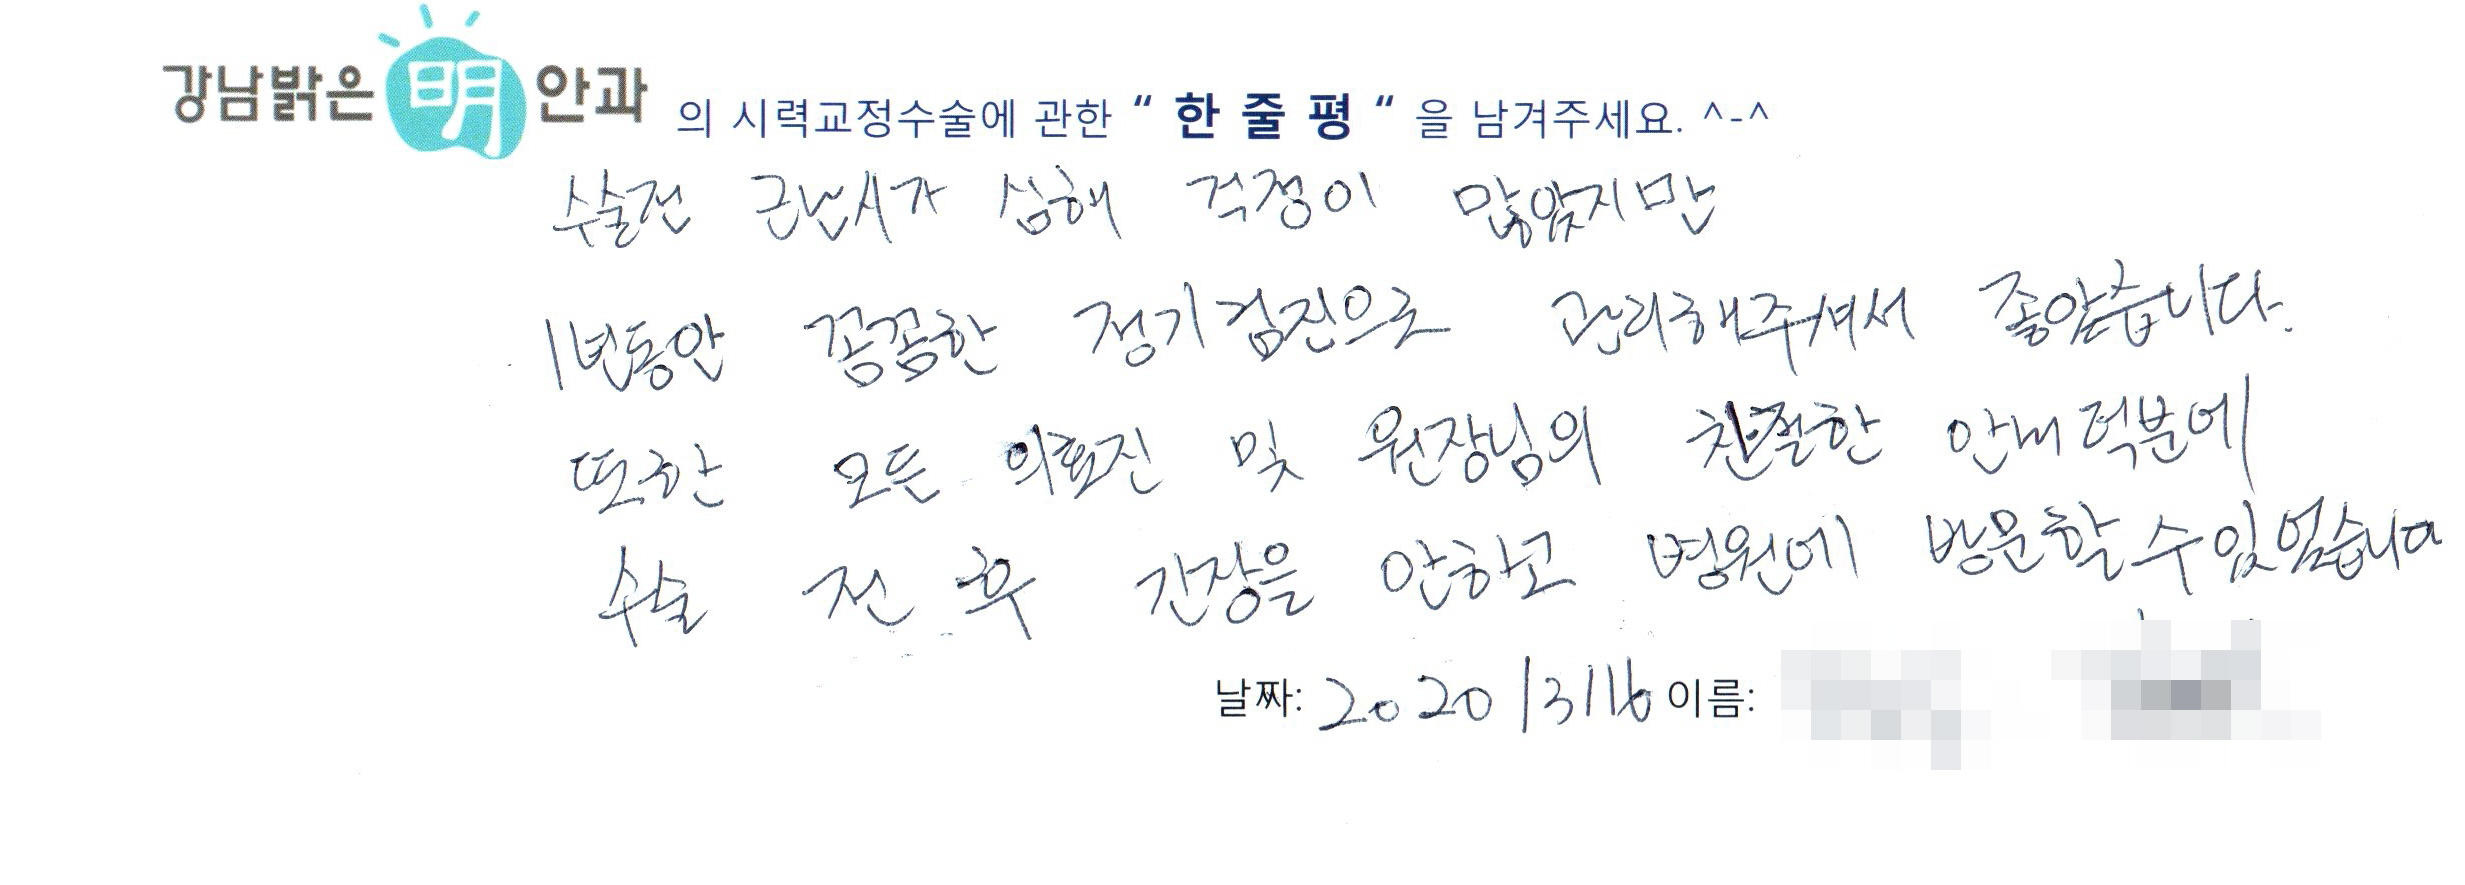 강남밝은 明 안과 의 시력교정수술에 관한 “ 한 줄 평 “ 을 남겨주세요. ^-^
수술전 근시가 심해 걱정이 많았지만
1년동안 꼼꼼한 정기검진으로 관리해주셔서 좋았습니다.
또한 모든 의료진 및 원장님의 친절한 안내 덕분에
수술 전 후 긴장을 안하고 병원에 방문할 수 있었습니다
날짜: 2020/3/16 이름: